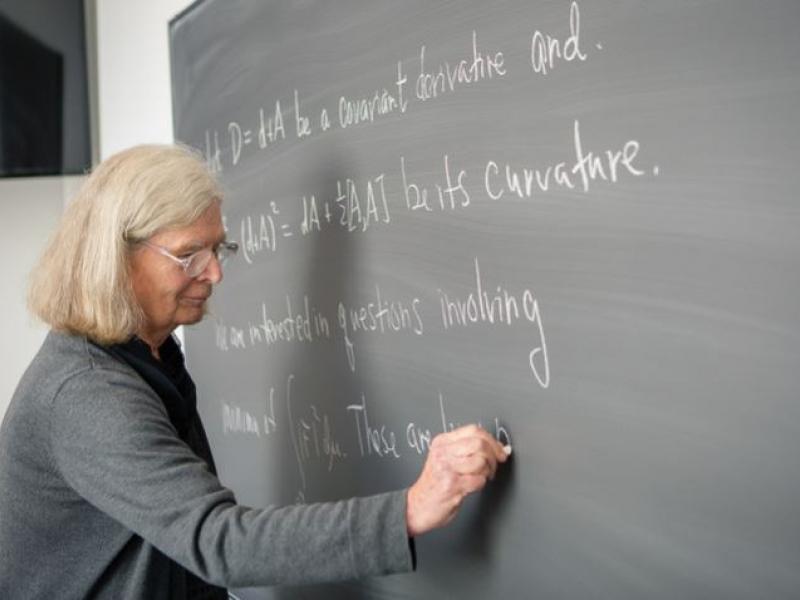 let D = d+A be a covariant derivative and.
(d+A)² = dA + ½[A,A] be its curvature.
We are interested in questions involving
minima of ∫|F|²dμ. These are